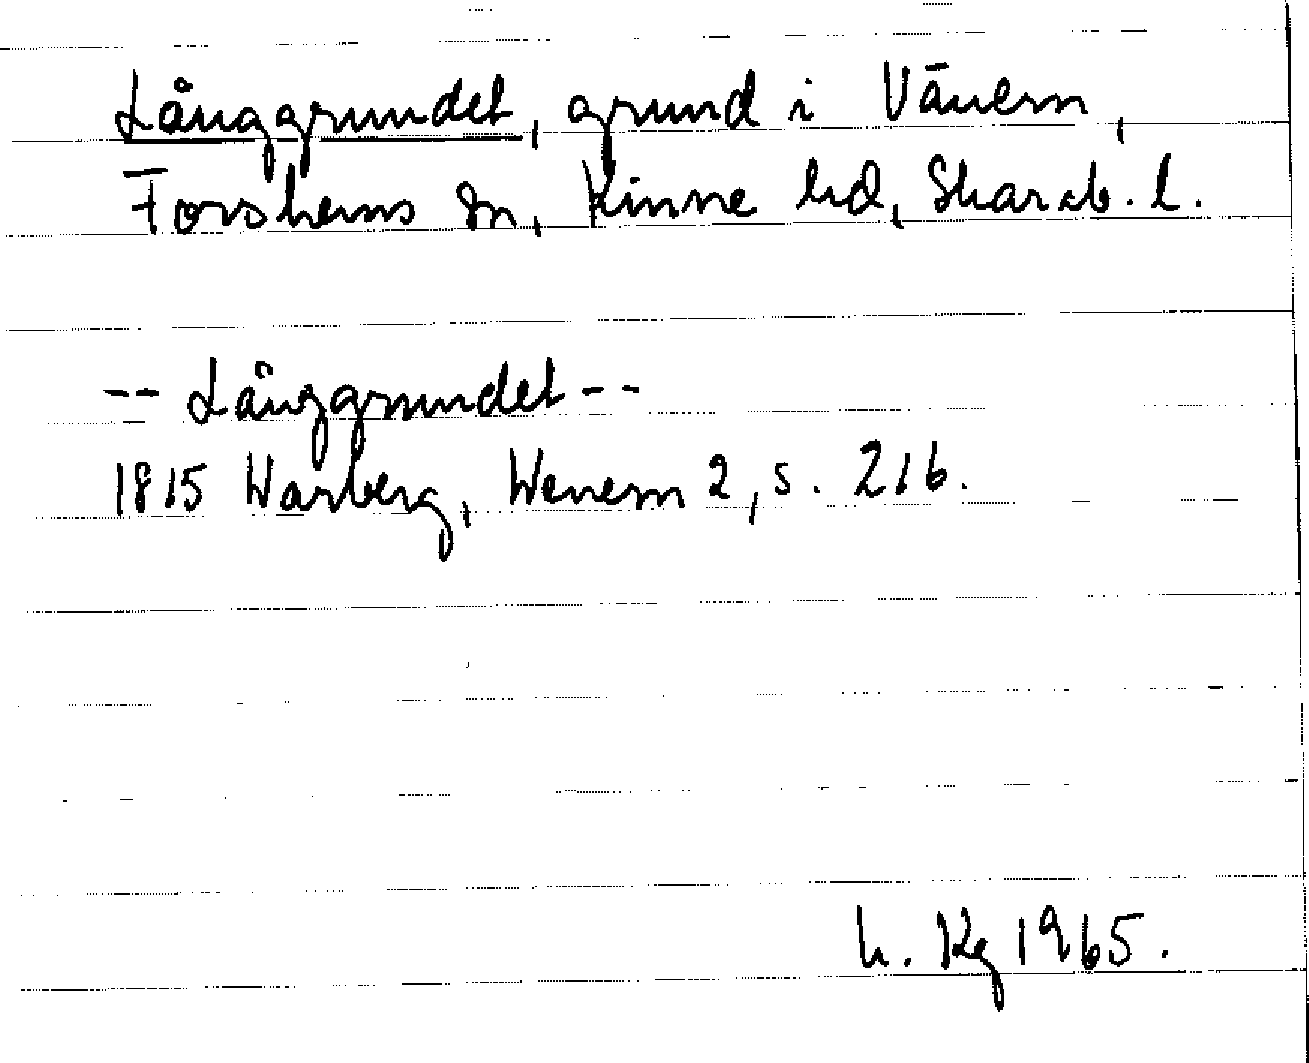 Långgrundet, grund i Vänern,
Forshems sn, Kinne hd, Skarab. l.
-- Långgrundet --
1815 Warberg, Wenern 2, s. 216.
L. Kg 1965.